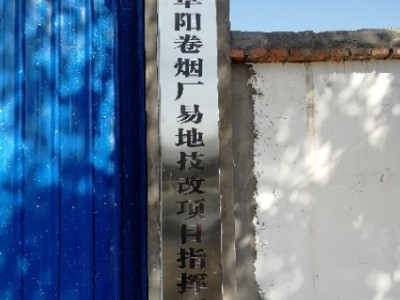 阜阳卷烟厂易地技改项目指挥